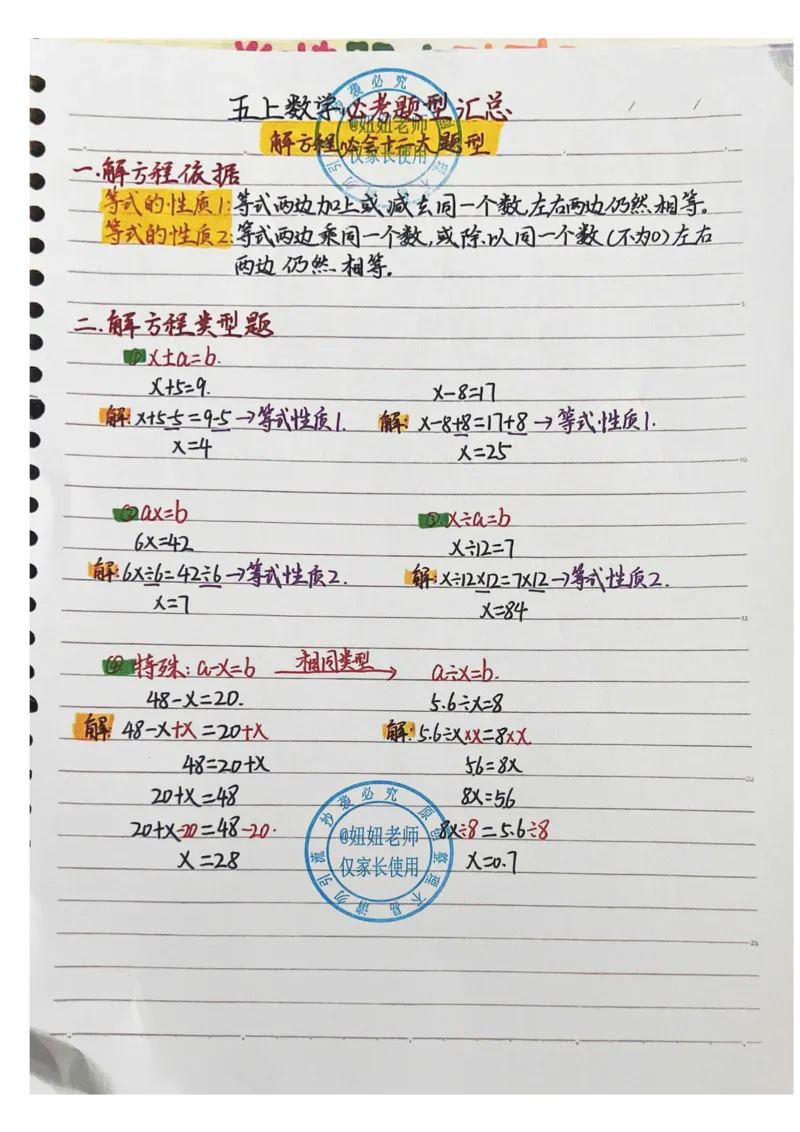 五上数学必考题型汇总
解方程必会十二大题型
一.解方程依据
等式的性质1:等式两边加上或减去同一个数,左右两边仍然相等。
等式的性质2:等式两边乘同一个数,或除以同一个数(不为0)左右
两边仍然相等。
二.解方程类型题
① x±a=b.
x+5=9.
解:x+5-5=9-5→等式性质1.
x=4
x-8=17
解:x-8+8=17+8→等式性质1.
x=25
② ax=b
6x=42
解:6x÷6=42÷6→等式性质2.
x=7
③ x÷a=b
x÷12=7
解:x÷12×12=7×12→等式性质2.
x=84
④ 特殊:a-x=b 相同类型→ a÷x=b.
48-x=20.
解:48-x+x=20+x
48=20+x
20+x=48
20+x-20=48-20.
x=28
5.6÷x=8
解:5.6÷x×x=8×x
56=8x
8x=56
8x÷8=5.6÷8
x=0.7
@妞妞老师
仅家长使用
@妞妞老师
仅家长使用
原创整理不易请勿引流抄袭必究